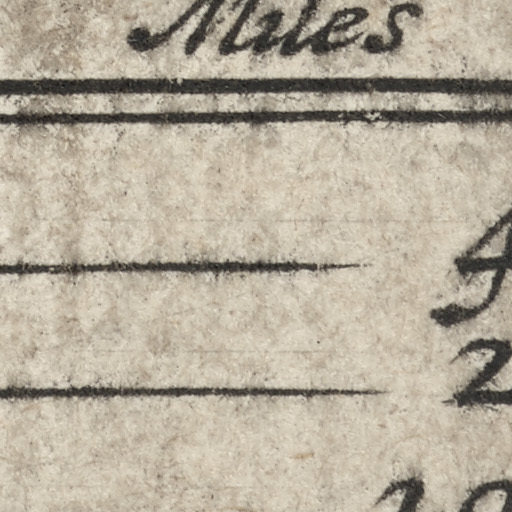 Miles
4
2
10